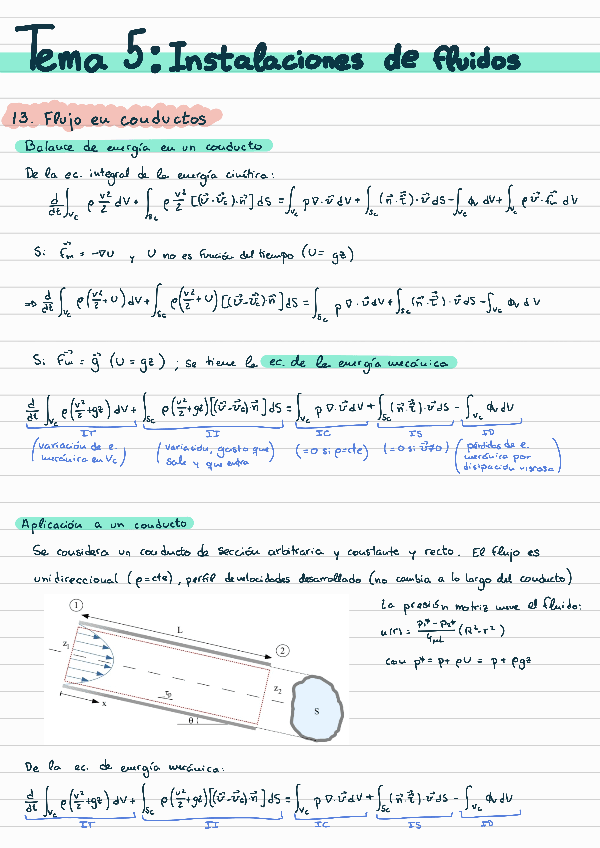 Tema 5: Instalaciones de fluidos
13. Flujo en conductos
Balance de energía en un conducto
De la ec. integral de la energía cinética:
d/dt ∫_Vc ρ v²/2 dV + ∫_Sc ρ v²/2 [(v⃗-v⃗c)·n⃗] dS = ∫_Vc p ∇·v⃗ dV + ∫_Sc (n⃗·τ⃗)·v⃗ dS - ∫_Vc ϕv dV + ∫_Vc ρ v⃗·f⃗m dV
Si f⃗m = -∇U y U no es función del tiempo (U= gz)
=> d/dt ∫_Vc ρ(v²/2 + U) dV + ∫_Sc ρ(v²/2 + U) [(v⃗-v⃗c)·n⃗] dS = ∫_Sc p ∇·v⃗ dV + ∫_Sc (n⃗·τ⃗)·v⃗ dS - ∫_Vc ϕv dV
Si f⃗m = g⃗ (U = gz) ; se tiene la ec. de la energía mecánica
d/dt ∫_Vc ρ(v²/2 + gz) dV + ∫_Sc ρ(v²/2 + gz) [(v⃗-v⃗c)·n⃗] dS = ∫_Vc p ∇·v⃗ dV + ∫_Sc (n⃗·τ⃗)·v⃗ dS - ∫_Vc ϕv dV
IT II IC IS ID
(variación de e. mecánica en Vc) (variación, gasto que sale y que entra) (=0 si ρ=cte) (=0 si v⃗=0) (pérdidas de e. mecánica por disipación viscosa)
Aplicación a un conducto
Se considera un conducto de sección arbitraria y constante y recto. El flujo es
unidireccional (ρ=cte), perfil de velocidades desarrollado (no cambia a lo largo del conducto)
La presión motriz mueve el fluido:
u(r) = (p1*-p2*)/(4μL) (R²-r²)
con p* = p + ρU = p + ρgz
1
L
2
z1
z2
S
x
τp
θ
De la ec. de energía mecánica:
d/dt ∫_Vc ρ(v²/2 + gz) dV + ∫_Sc ρ(v²/2 + gz) [(v⃗-v⃗c)·n⃗] dS = ∫_Vc p ∇·v⃗ dV + ∫_Sc (n⃗·τ⃗)·v⃗ dS - ∫_Vc ϕv dV
IT II IC IS ID